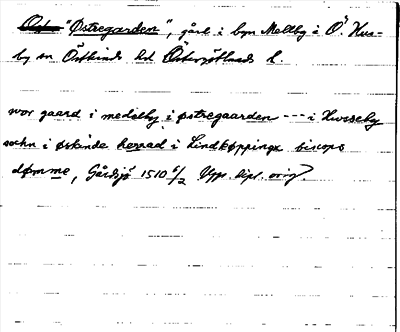 "Østregarden", gård i byn Mellby i Ö. Hus-
by sn Östkinds hd Östergötlands l.
vor gaard i medelby i østregaarden --- i Hwseby
sokn i øskinde herrad i Lindkøppinge biscops
dømme, Gårdsjö 1510 6/2 Upps. dipl. orig.